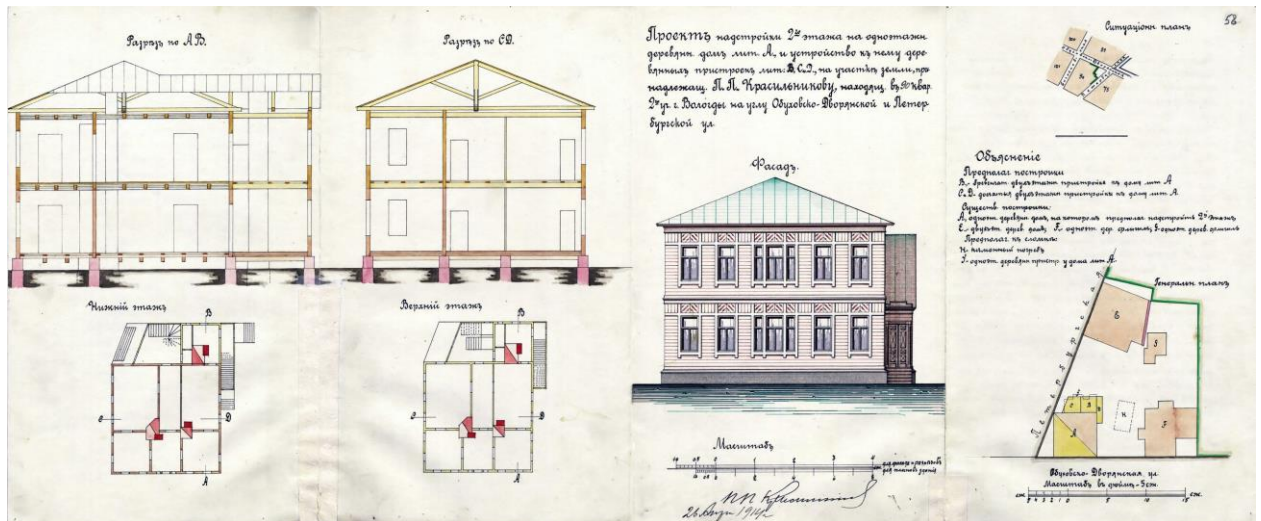 Разрѣзъ по А.В.
Разрѣзъ по С.D.
Нижній этажъ
В
С
D
А
Верхній этажъ
В
С
D
А
Проектъ надстройки 2го этажа на одноэтажн.
деревянн. домѣ лит. А, и устройство къ нему дере-
вянныхъ пристроекъ лит: В, С, D, на участкѣ земли, при-
надлежащ. П. П. Красильникову, находящ. въ 90 квар.
2й ч. г. Вологды на углу Обуховско-Дворянской и Петер-
бургской ул.
Фасадъ.
Масштабъ
1 2 3 4
26 1914 г.
58
Ситуаціонн. планъ
Объясненіе
Предполаг. постройки
В.- двухъэтажн. пристройка къ дому лит. А
С. D. двухъэтажн. пристройки къ дому лит. А.
Существ. постройки:
А, одноэт. деревянн. домъ, на которомъ предполаг. надстроить 2й этажъ,
Е.- двухъэт. дерев. домъ;
Предполаг. къ сломкѣ:
Н. каменный погребъ
одноэт. деревянн. пристр. у дома лит. А.
Генеральн. планъ
Петербургская
Е
С В
А
Н
F
Обуховско-Дворянская ул.
Масштабъ въ дюймѣ - 5 саж.
саж. 5 4 3 2 1 0 5 10 15 саж.